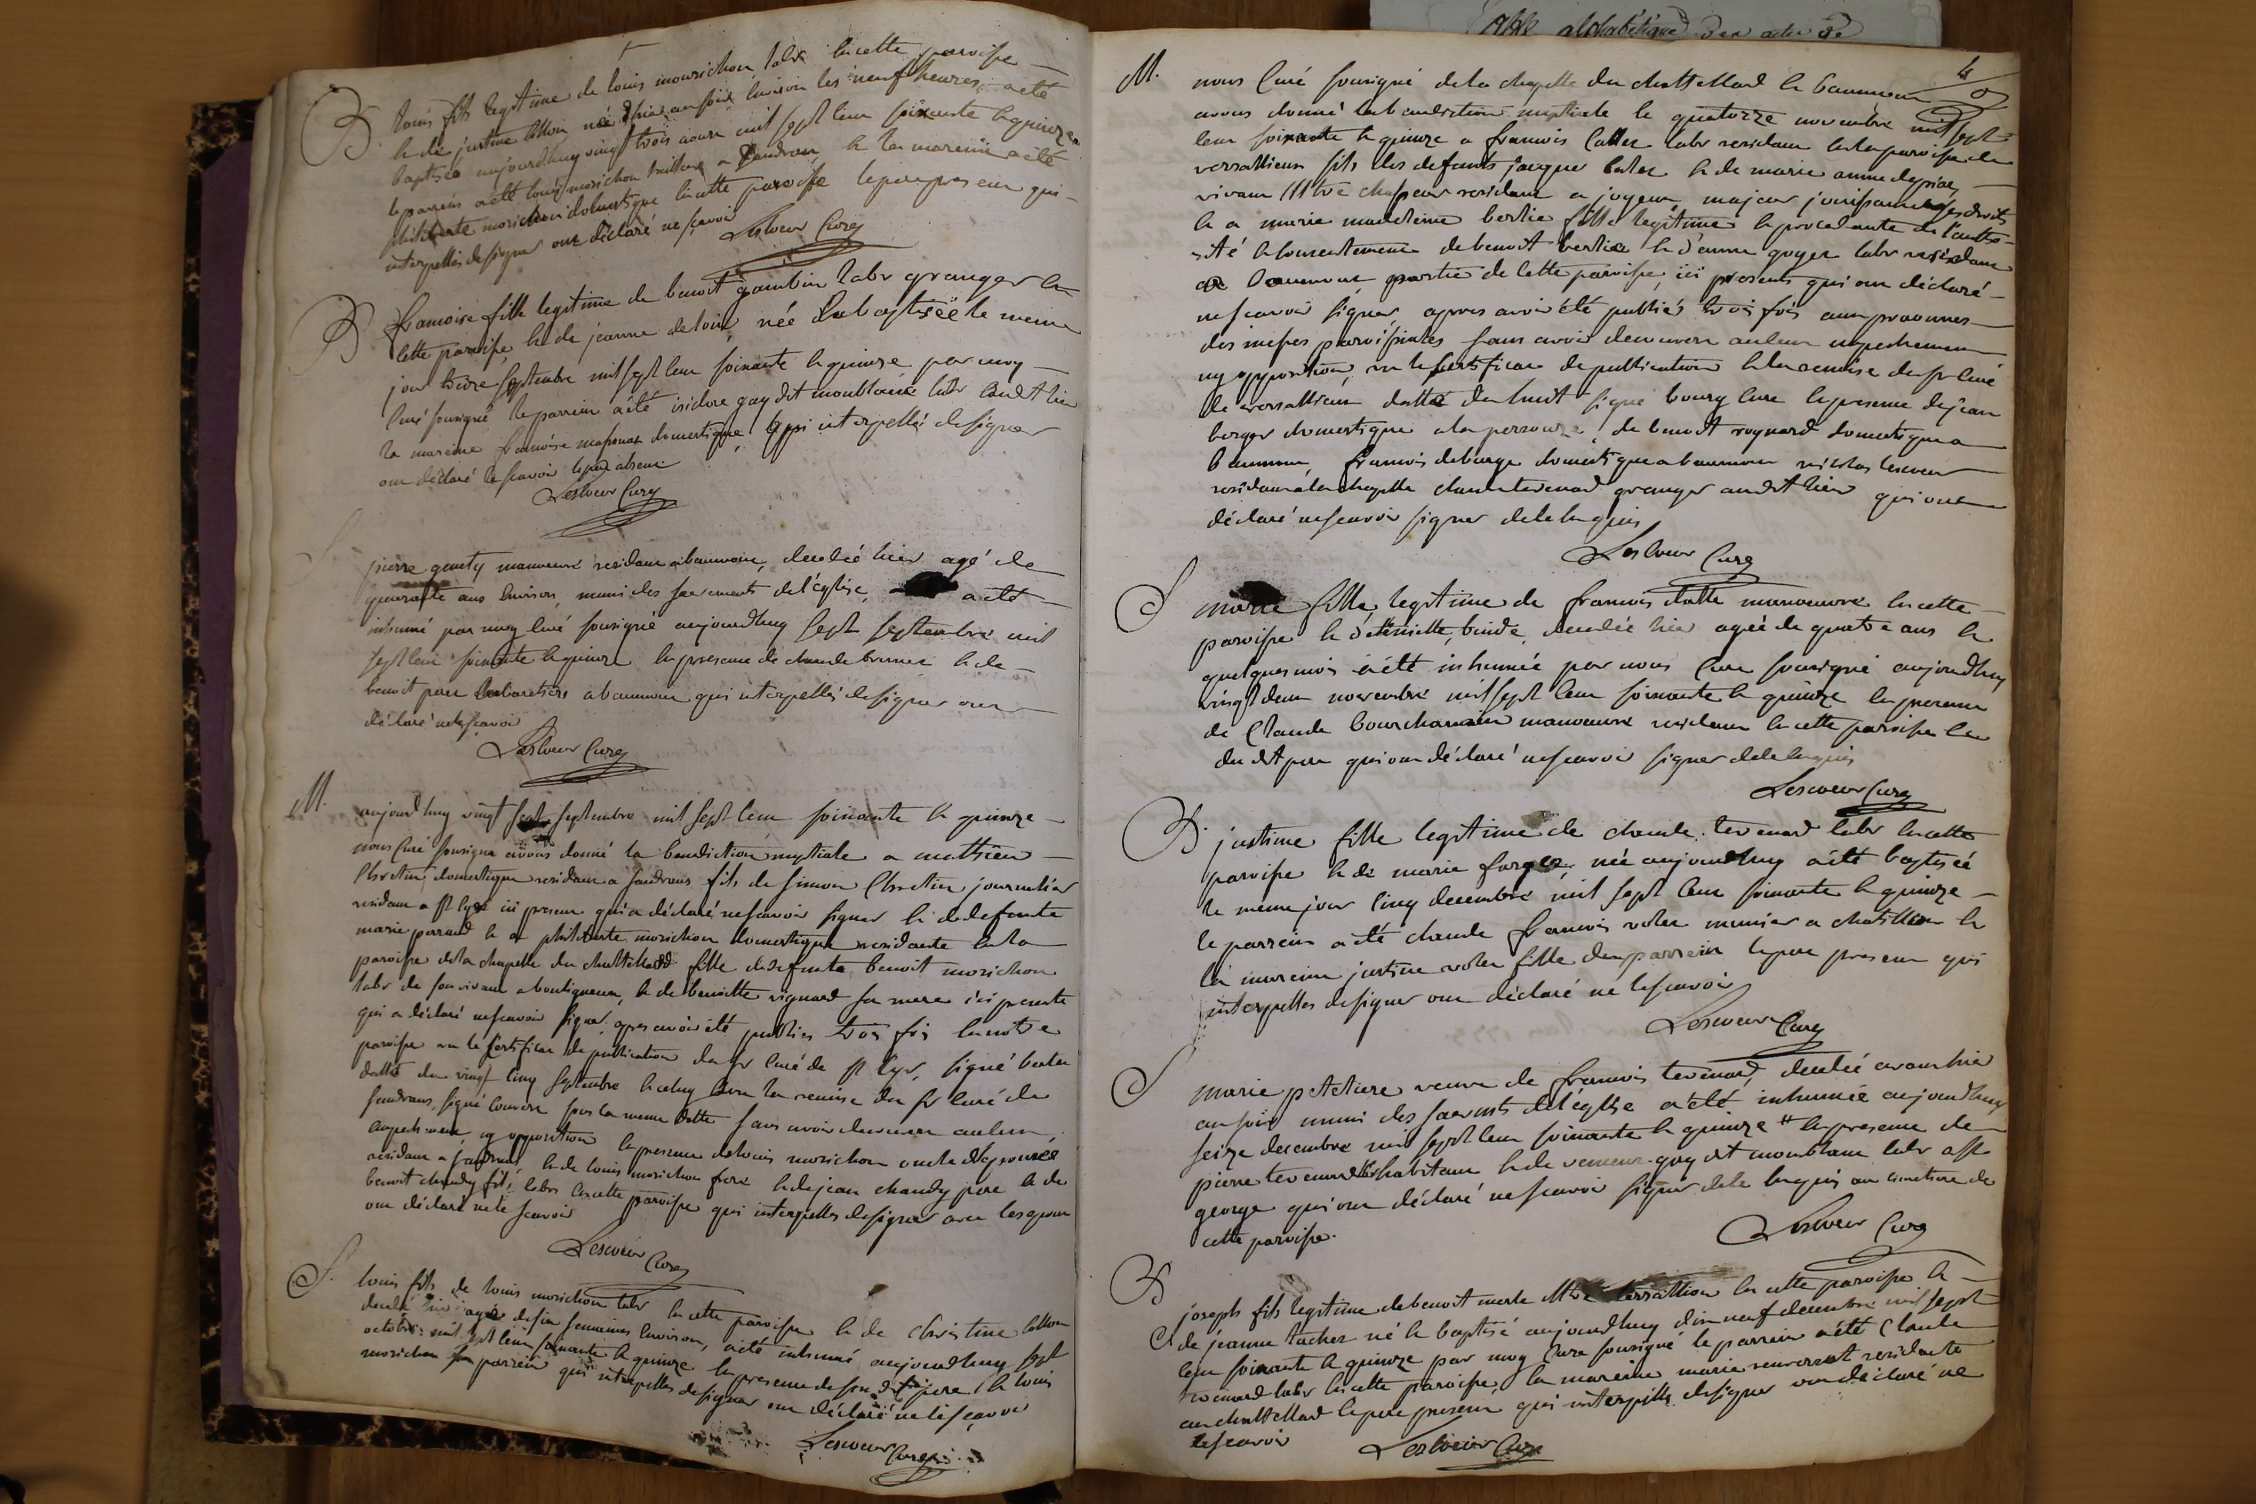 Table alphabétique des actes de
B. Louis fils legitime de louis morichon labr en cette paroisse
et de justine lotton né hier au soir environ les neuf heures, a été
baptisé aujourdhuy vingt trois aoust mil sept cent soixante et quinze
le parrein a été louis morichon a Sandrans et la mareine a été
philiberte morichon domestique en cette paroisse le pere present qui
interpellés de signer ont déclaré ne sçavoir
Lescoeur Curé
B francoise fille legitime de benoit gambin labr granger en
cette paroisse et de jeanne deloin, née et baptisée le meme
jour treize septembre mil sept cent soixante et quinze par moy
Curé sousigné le parrein a été isidore gay dit montblanc labr audit lieu
la mareine francoise domestique qui interpellés de signer
ont déclaré le scavoir le pere absent
Lescoeur Curé
S pierre genety manoeuvre residant a baumont, decedé hier agé de
quarante ans environ, muni des sacrements de l'église, a été
inhumé par moy Curé sousigné aujourdhuy sept septembre mil
sept cent soixante et quinze en presence de claude et de
benoit cabaretiers a baumont qui interpellés de signer ont
déclaré ne le scavoir
Lescoeur Curé
M. aujourdhuy vingt sept septembre mil sept cent soixante et quinze
nous Curé sousigné avons donné la benediction nuptiale a mathieu
Chretin domestique residant a sandrans fils de simon Chretin journalier
residant a st Cyr ici present qui a déclaré ne scavoir signer et de defunte
marie perraud et a philiberte morichon domestique residante en la
paroisse de la chapelle du chattellard fille de defunt benoit morichon
labr de son vivant a bouligneux, et de benoitte vignard sa mere ici presente
qui a déclaré ne scavoir signer, apres avoir été publiés trois fois en notre
paroisse vu le certificat de publication du sr Curé de st Cyr, signé
datté du vingt cinq septembre et celuy avec la remise du sr Curé de
sandrans, signé sous la meme datte sans avoir decouvert aucun
empechement ny opposition en presence de louis morichon oncle de l'epouse
residant a sandrans et de louis morichon frere et de jean chandy pere et de
benoit chandy fils labrs en cette paroisse qui interpellés de signer avec les epoux
ont déclaré ne le scavoir
Lescoeur Curé
S. louis fils de louis morichon labr en cette paroisse et de christine lotton
decedé hier agé de six semaines environ, a été inhumé aujourdhuy sept
octobre mil sept cent soixante et quinze en presence de son dit pere et de louis
morichon son parrein qui interpellés de signer ont déclaré ne le sçavoir
Lescoeur Curé
4
M. nous Curé sousigné de la chapelle du chattellard et baumont
avons donné la benediction nuptiale le quatorze novembre mil sept
cent soixante et quinze a francois labr residant en la paroisse de
versailleux fils des defunts jacques et de marie anne
vivant residant a joyeux, majeur jouissant de ses droits
et a marie madeleine bertie fille legitime et procedante de l'autho-
rité et consentement de benoit bertie et d'anne goyet labr residant
a baumont, partie de cette paroisse, ici presents qui ont déclaré
ne scavoir signer, apres avoir été publiés trois fois aux pronnes
des messes paroissiales sans avoir decouvert aucun empechement
ny opposition, vu le certificat de publication et la remise du sr Curé
de versailleux datté du huit signé bourg Curé en presence de jean
berger domestique a la perrouze, de benoit roynard domestique a
baumont, francois deburge domestique a baumont nicolas lescoeur
residant a la chapelle claude tevenard granger audit lieu qui ont
déclaré ne scavoir signer de ce enquis
Lescoeur Curé
S marie fille legitime de francois manoeuvre en cette
paroisse et d'etiennette, decedée hier agée de quatre ans et
quelques mois a été inhumée par nous Curé sousigné aujourdhuy
vingt deux novembre mil sept cent soixante et quinze en presence
de Claude bourchanain manoeuvre residant en cette paroisse et
du dit pere qui ont déclaré ne scavoir signer de ce enquis
Lescoeur Curé
B. justine fille legitime de claude tevenard labr en cette
paroisse et de marie forges, née aujourdhuy a été baptisée
le meme jour cinq decembre mil sept cent soixante et quinze
le parrein a été claude francois volet munier a chatillon et
la mareine justine volet fille du parrein le pere present qui
interpellés de signer ont déclaré ne le scavoir
Lescoeur Curé
S marie veuve de francois tevenard, decedée avant hier
au soir muni des sacrements de l'église a été inhumée aujourdhuy
seize decembre mil sept cent soixante et quinze # en presence de
pierre tevenard labr habitant et de gay dit montblanc labr a st
george qui ont déclaré ne scavoir signer de ce enquis au cimetiere de
cette paroisse.
Lescoeur Curé
B joseph fils legitime de benoit merle en cette paroisse et
de jeanne tachet né et baptisé aujourdhuy dix neuf decembre mil sept
cent soixante et quinze par moy Curé sousigné le parrein a été Claude
tevenard labr en cette paroisse, la mareine marie residante
au chattellard le pere present qui interpellés de signer ont déclaré ne
le scavoir
Lescoeur Curé